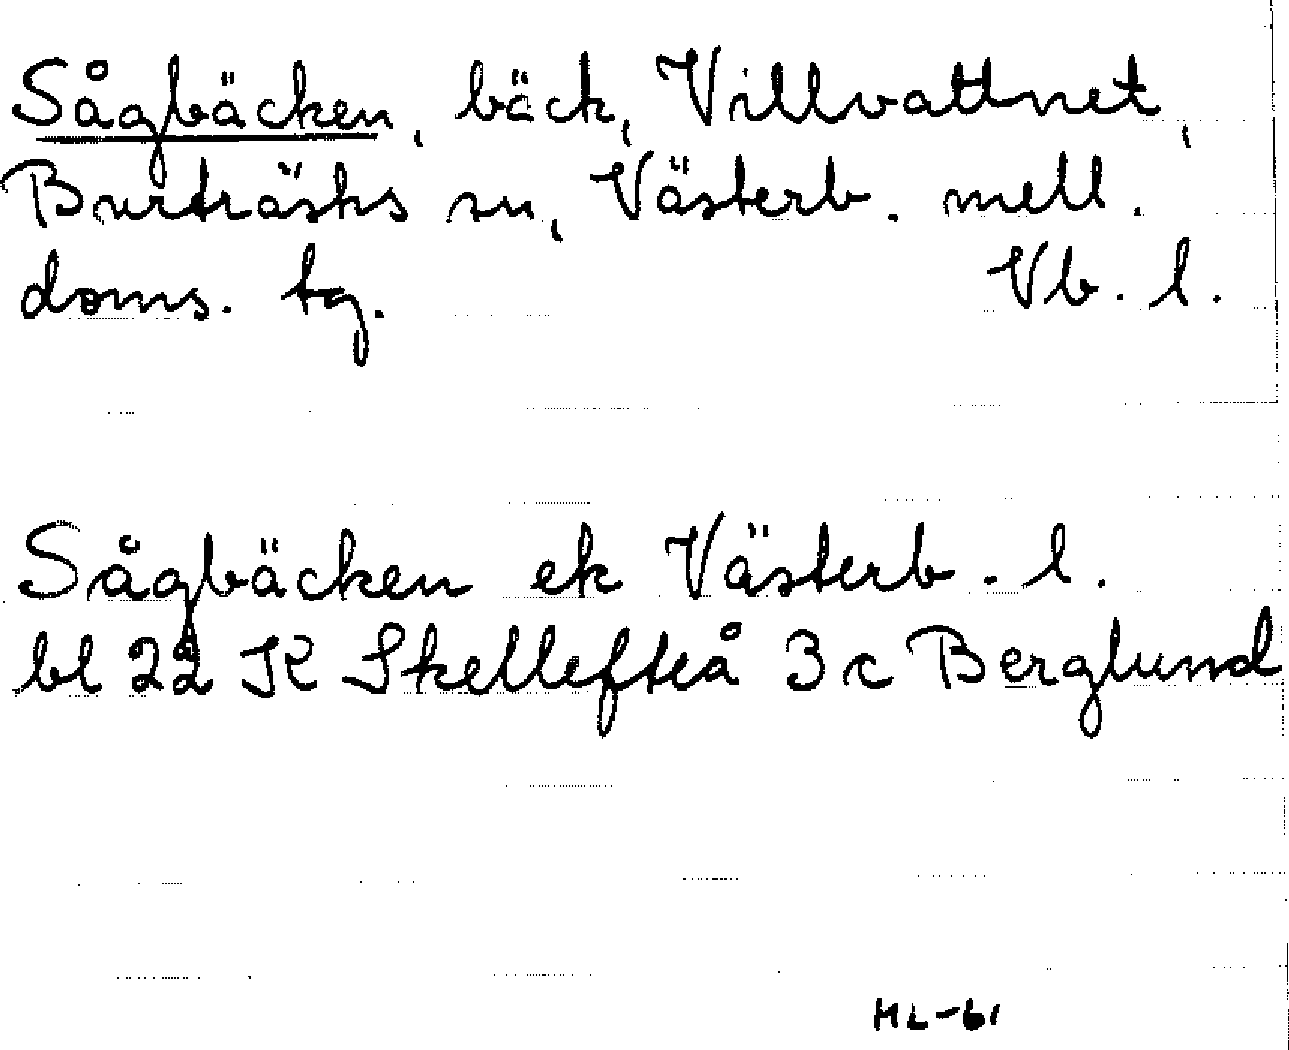 Sågbäcken, bäck, Villvattnet,
Burträsks sn, Västerb. mell.
doms. tg. Vb. l.
Sågbäcken ek Västerb. l.
bl 22 K Skellefteå 3 c Berglund
ML-61